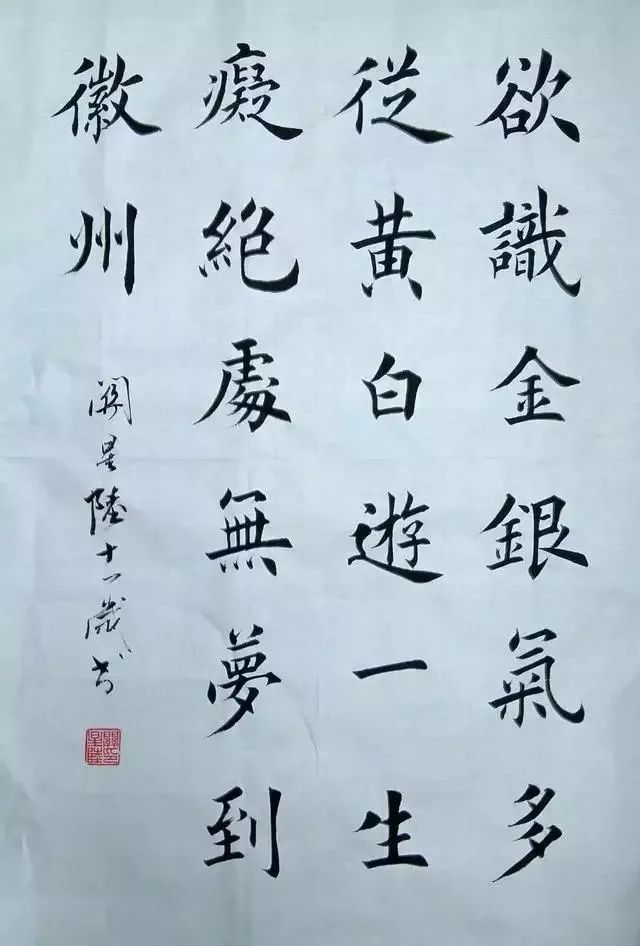 欲識金銀氣多
從黄白遊一生
癡絶處無夢到
徽州
關星陸十一歲书